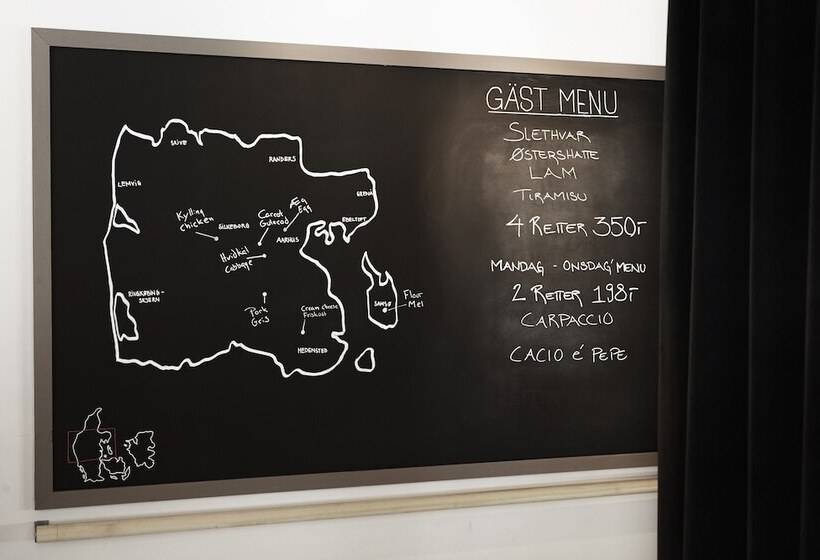 SKIVE
RANDERS
LEMVIG
GRENÅ
Kylling
Chicken
SILKEBORG
Carrot
Gulerod
Æg
Egg
EBELTOFT
AARHUS
Hvidkål
Cabbage
RINGKØBING-
SKJERN
Pork
Gris
Cream cheese
Friskost
SAMSØ
Flour
Mel
HEDENSTED
GÄST MENU
SLETHVAR
ØSTERSHATTE
LAM
TIRAMISU
4 RETTER 350,-
MANDAG - ONSDAG MENU
2 RETTER 198,-
CARPACCIO
CACIO é PEPE